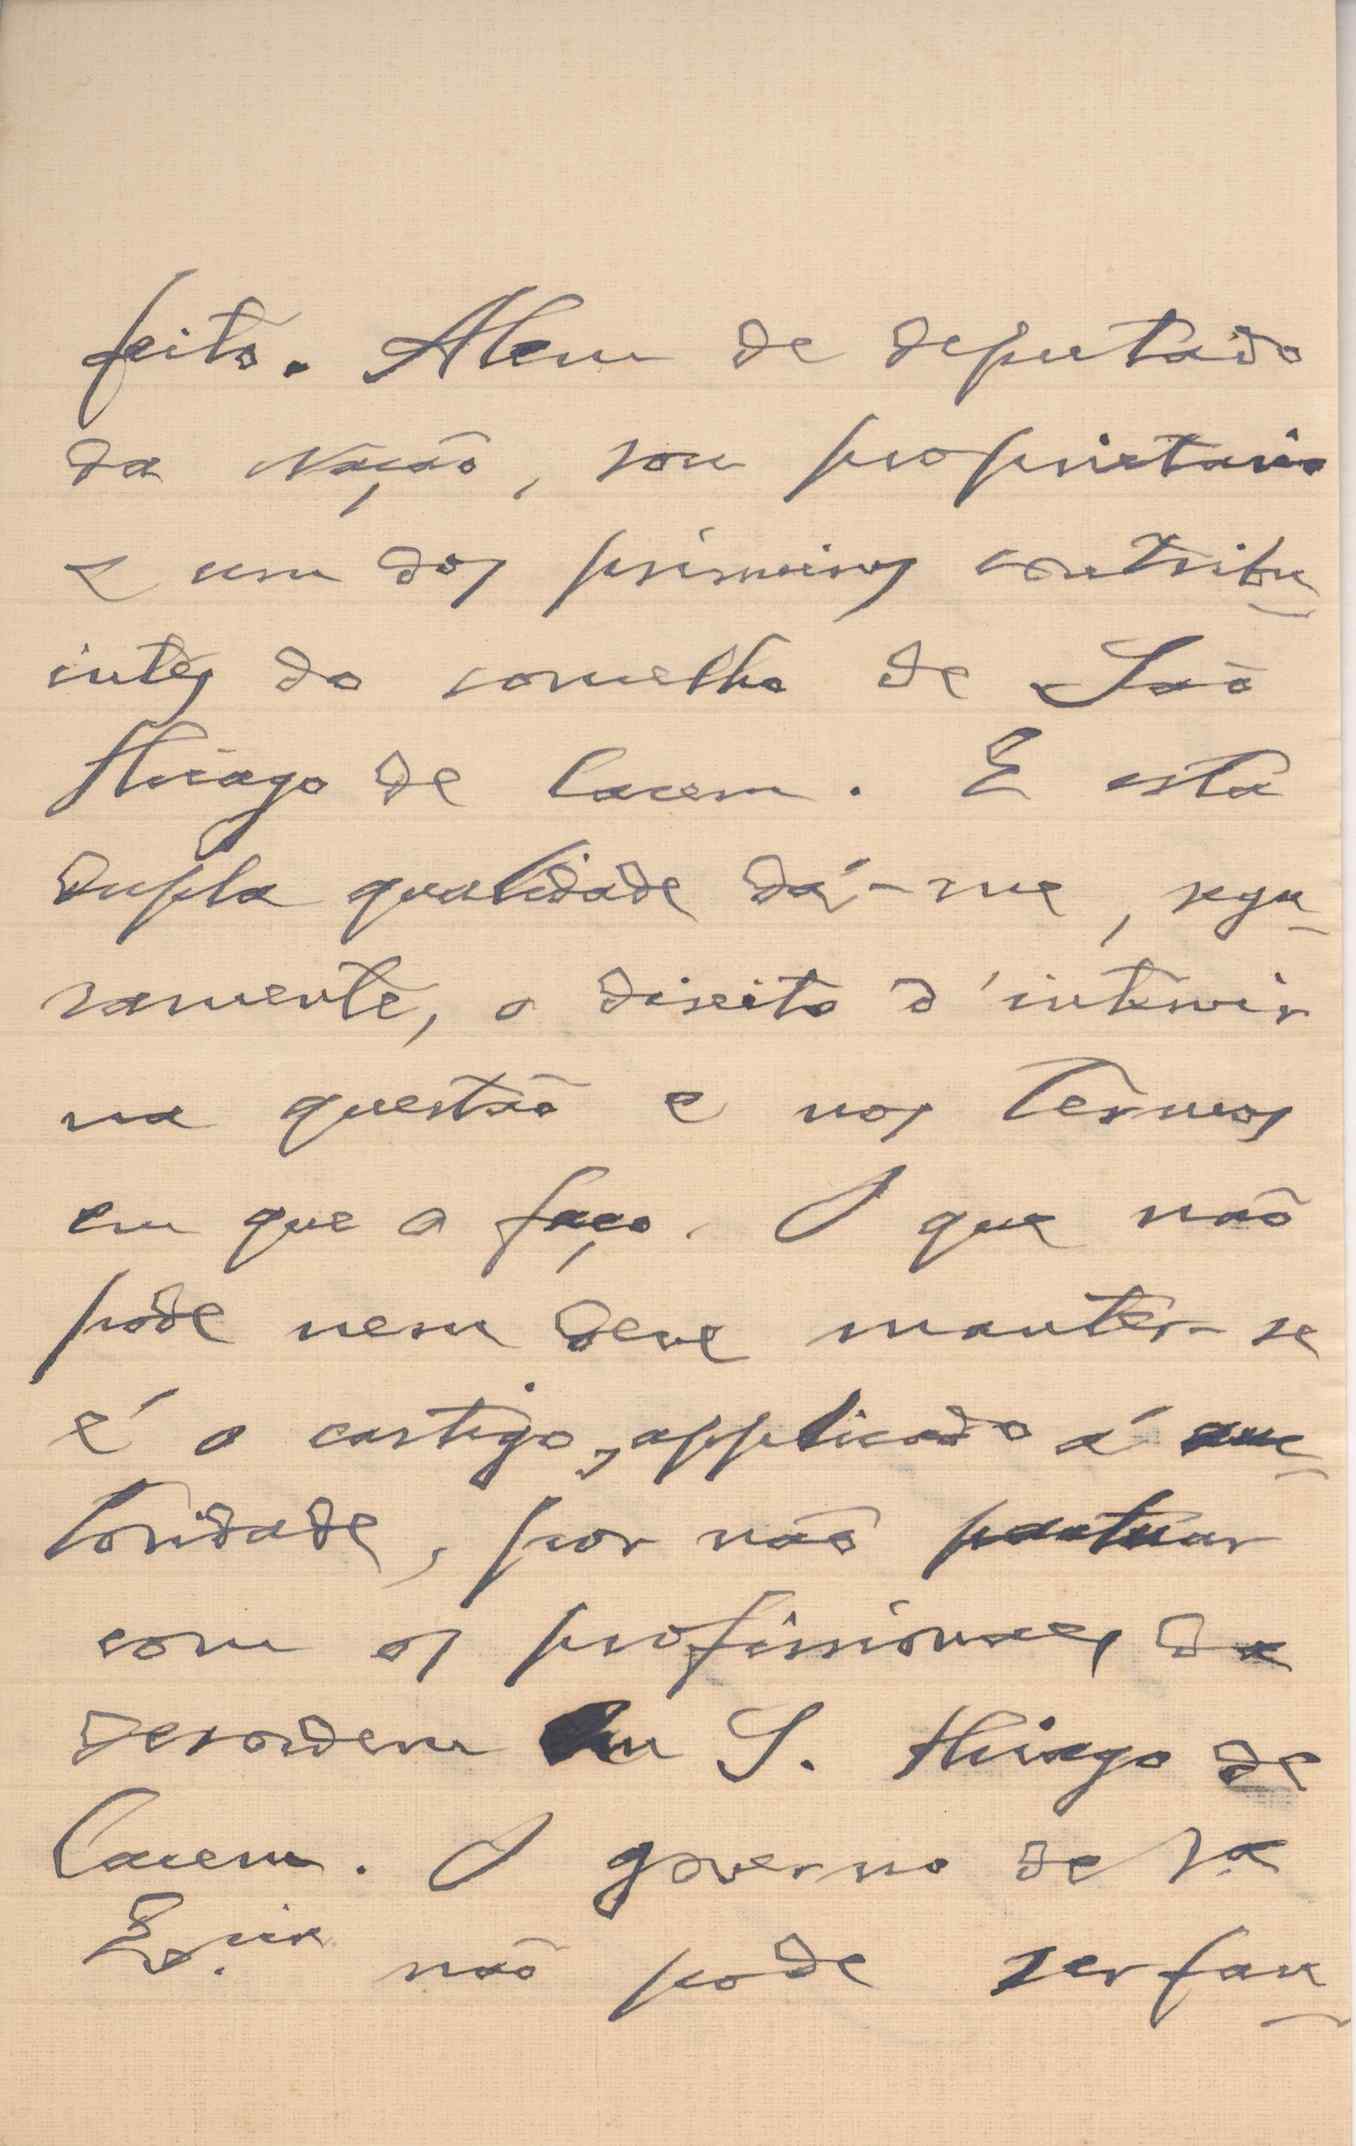 feito. Alem de deputado
da Nação, sou proprietario
e um dos primeiros contribu_
intes do concelho de São
Thiago de Cacem. E esta
dupla qualidade dá-me, segu_
ramente, o direito d'intervir
na questão e nos termos
em que o faço. O que não
póde nem deve manter-se
é o castigo, applicado á au_
toridade, por não pactuar
com os profissionaes da
desordem em S. Thiago de
Cacem. O governo de Va
Excia não pode ser fau_